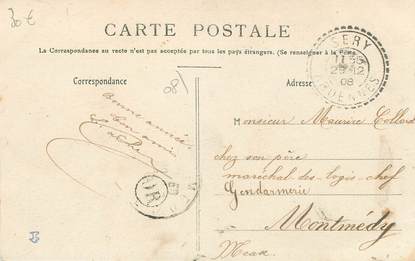 30€
CARTE POSTALE
La Correspondance au recto n'est pas acceptée par tous les pays étrangers. (Se renseigner à la Poste)
Correspondance
Adresse
08
ERY
11 35
29 12
08
ARDENNES
Bonne année
bon ami
OR
Monsieur Maurice Collard
chez son père
maréchal des-logis-chef
Gendarmerie
Montmédy
Meuse